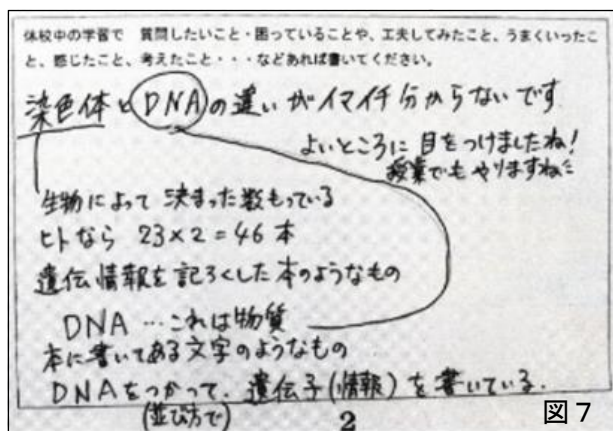 休校中の学習で 質問したいこと・困っていることや、工夫してみたこと、うまくいったこ
と、感じたこと、考えたこと・・・などあれば書いてください。
染色体とDNAの違いがイマイチ分からないです
よいところに目をつけましたね!
授業でもやりますね
生物によって決まった数もっている
ヒトなら 23×2=46本
遺伝情報を記ろくした本のようなもの
DNA…これは物質
本に書いてある文字のようなもの
DNAをつかって、遺伝子(情報)を書いている.
(並び方で)
2
図7